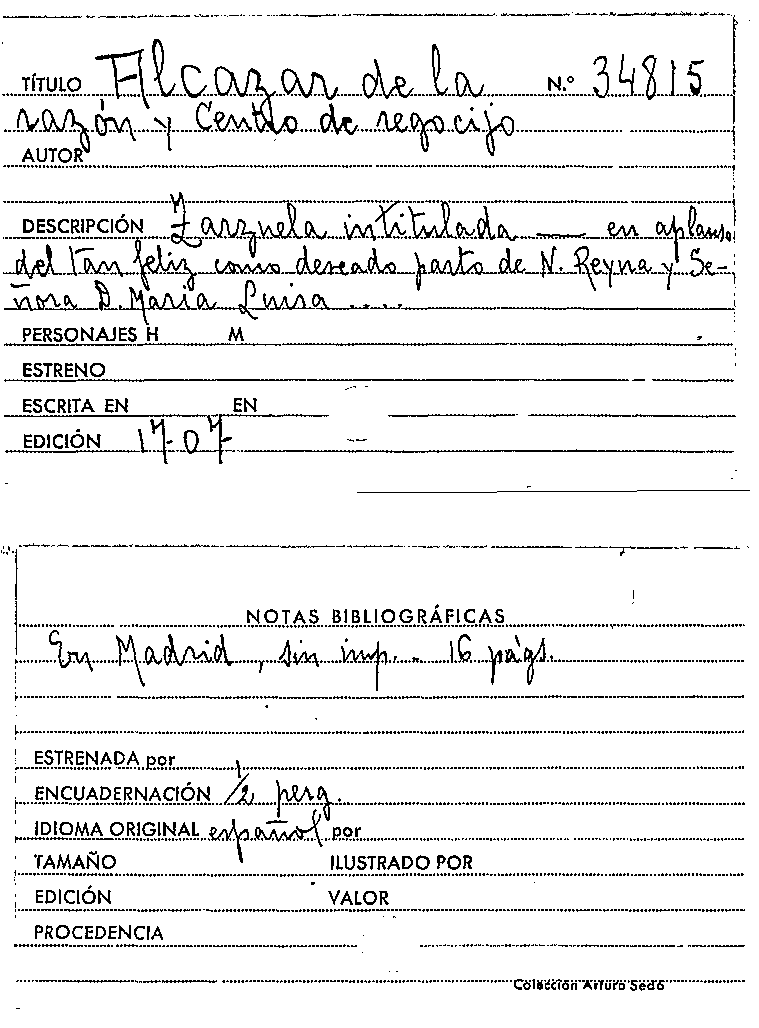 TÍTULO Alcazar de la N.º 34815
razón y Centro de regocijo
AUTOR
DESCRIPCIÓN Zarzuela intitulada — en aplauso
del tan feliz como deseado parto de N. Reyna y Se-
ñora D. Maria Luisa ....
PERSONAJES H M
ESTRENO
ESCRITA EN EN
EDICIÓN 1707
NOTAS BIBLIOGRÁFICAS
En Madrid, sin imp. - 16 págs.
ESTRENADA por
ENCUADERNACIÓN 1/2 perg.
IDIOMA ORIGINAL español por
TAMAÑO ILUSTRADO POR
EDICIÓN VALOR
PROCEDENCIA
Colección Arturo Sedó